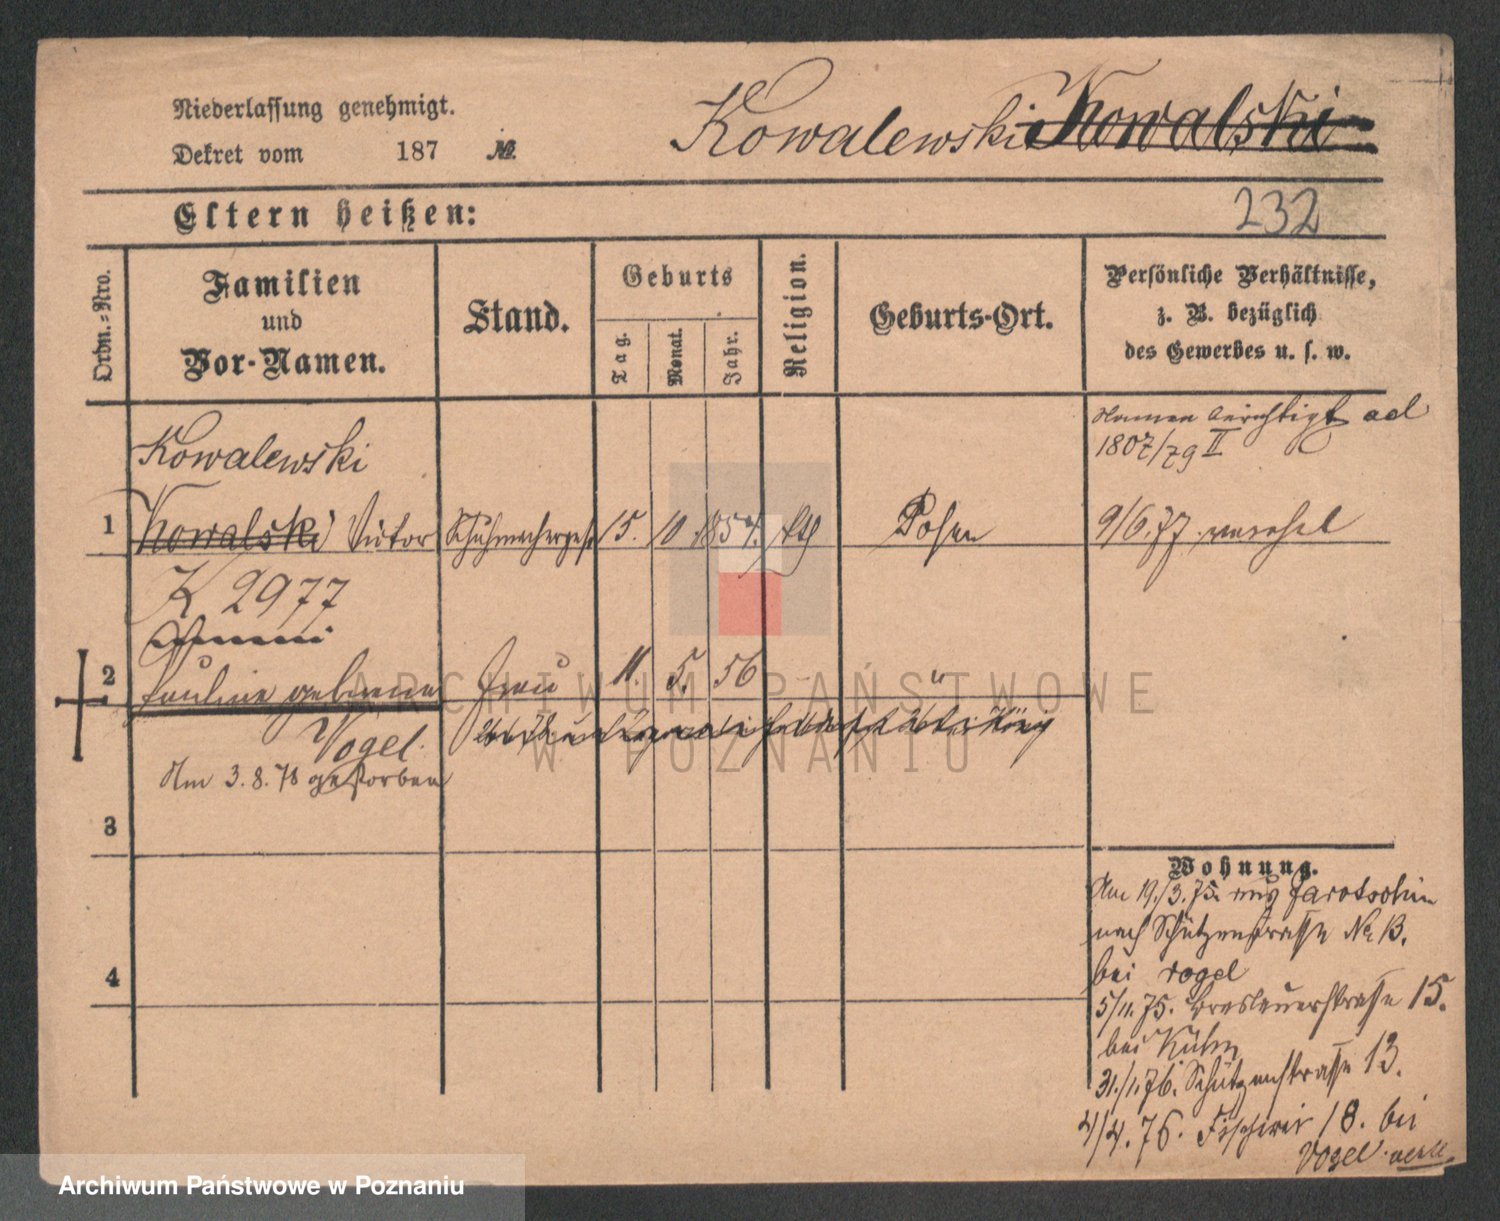 Niederlassung genehmigt.
Dekret vom 187 №
Kowalewski Kowalski
Eltern heißen:
232
Ordn.-Nro.
Familien
und
Vor-Namen.
Stand.
Geburts
Tag.
Monat.
Jahr.
Religion.
Geburts-Ort.
Persönliche Verhältnisse,
z. B. bezüglich
des Gewerbes u. s. w.
Namen berichtigt ad
1807/79 II
Kowalewski
1 Kowalski Victor Schuhmachergess 15. 10. 1854. kth Posen 9/6.77.
K 2977
2 Pauline geborene Frau 11. 5. 56 "
Vogel.
Am 3.8.78 gestorben
3
4
Wohnung.
Am 19./3.75. aus Jarotschin
nach Schützenstrasse No 13.
bei Vogel
5/11.75. Breslauerstrasse 15.
bei Kühn
31./1.76. Schützenstrasse 13.
4/4.76. Fischerei 18. bei
Vogel.
ARCHIWUM PAŃSTWOWE
W POZNANIU
Archiwum Państwowe w Poznaniu